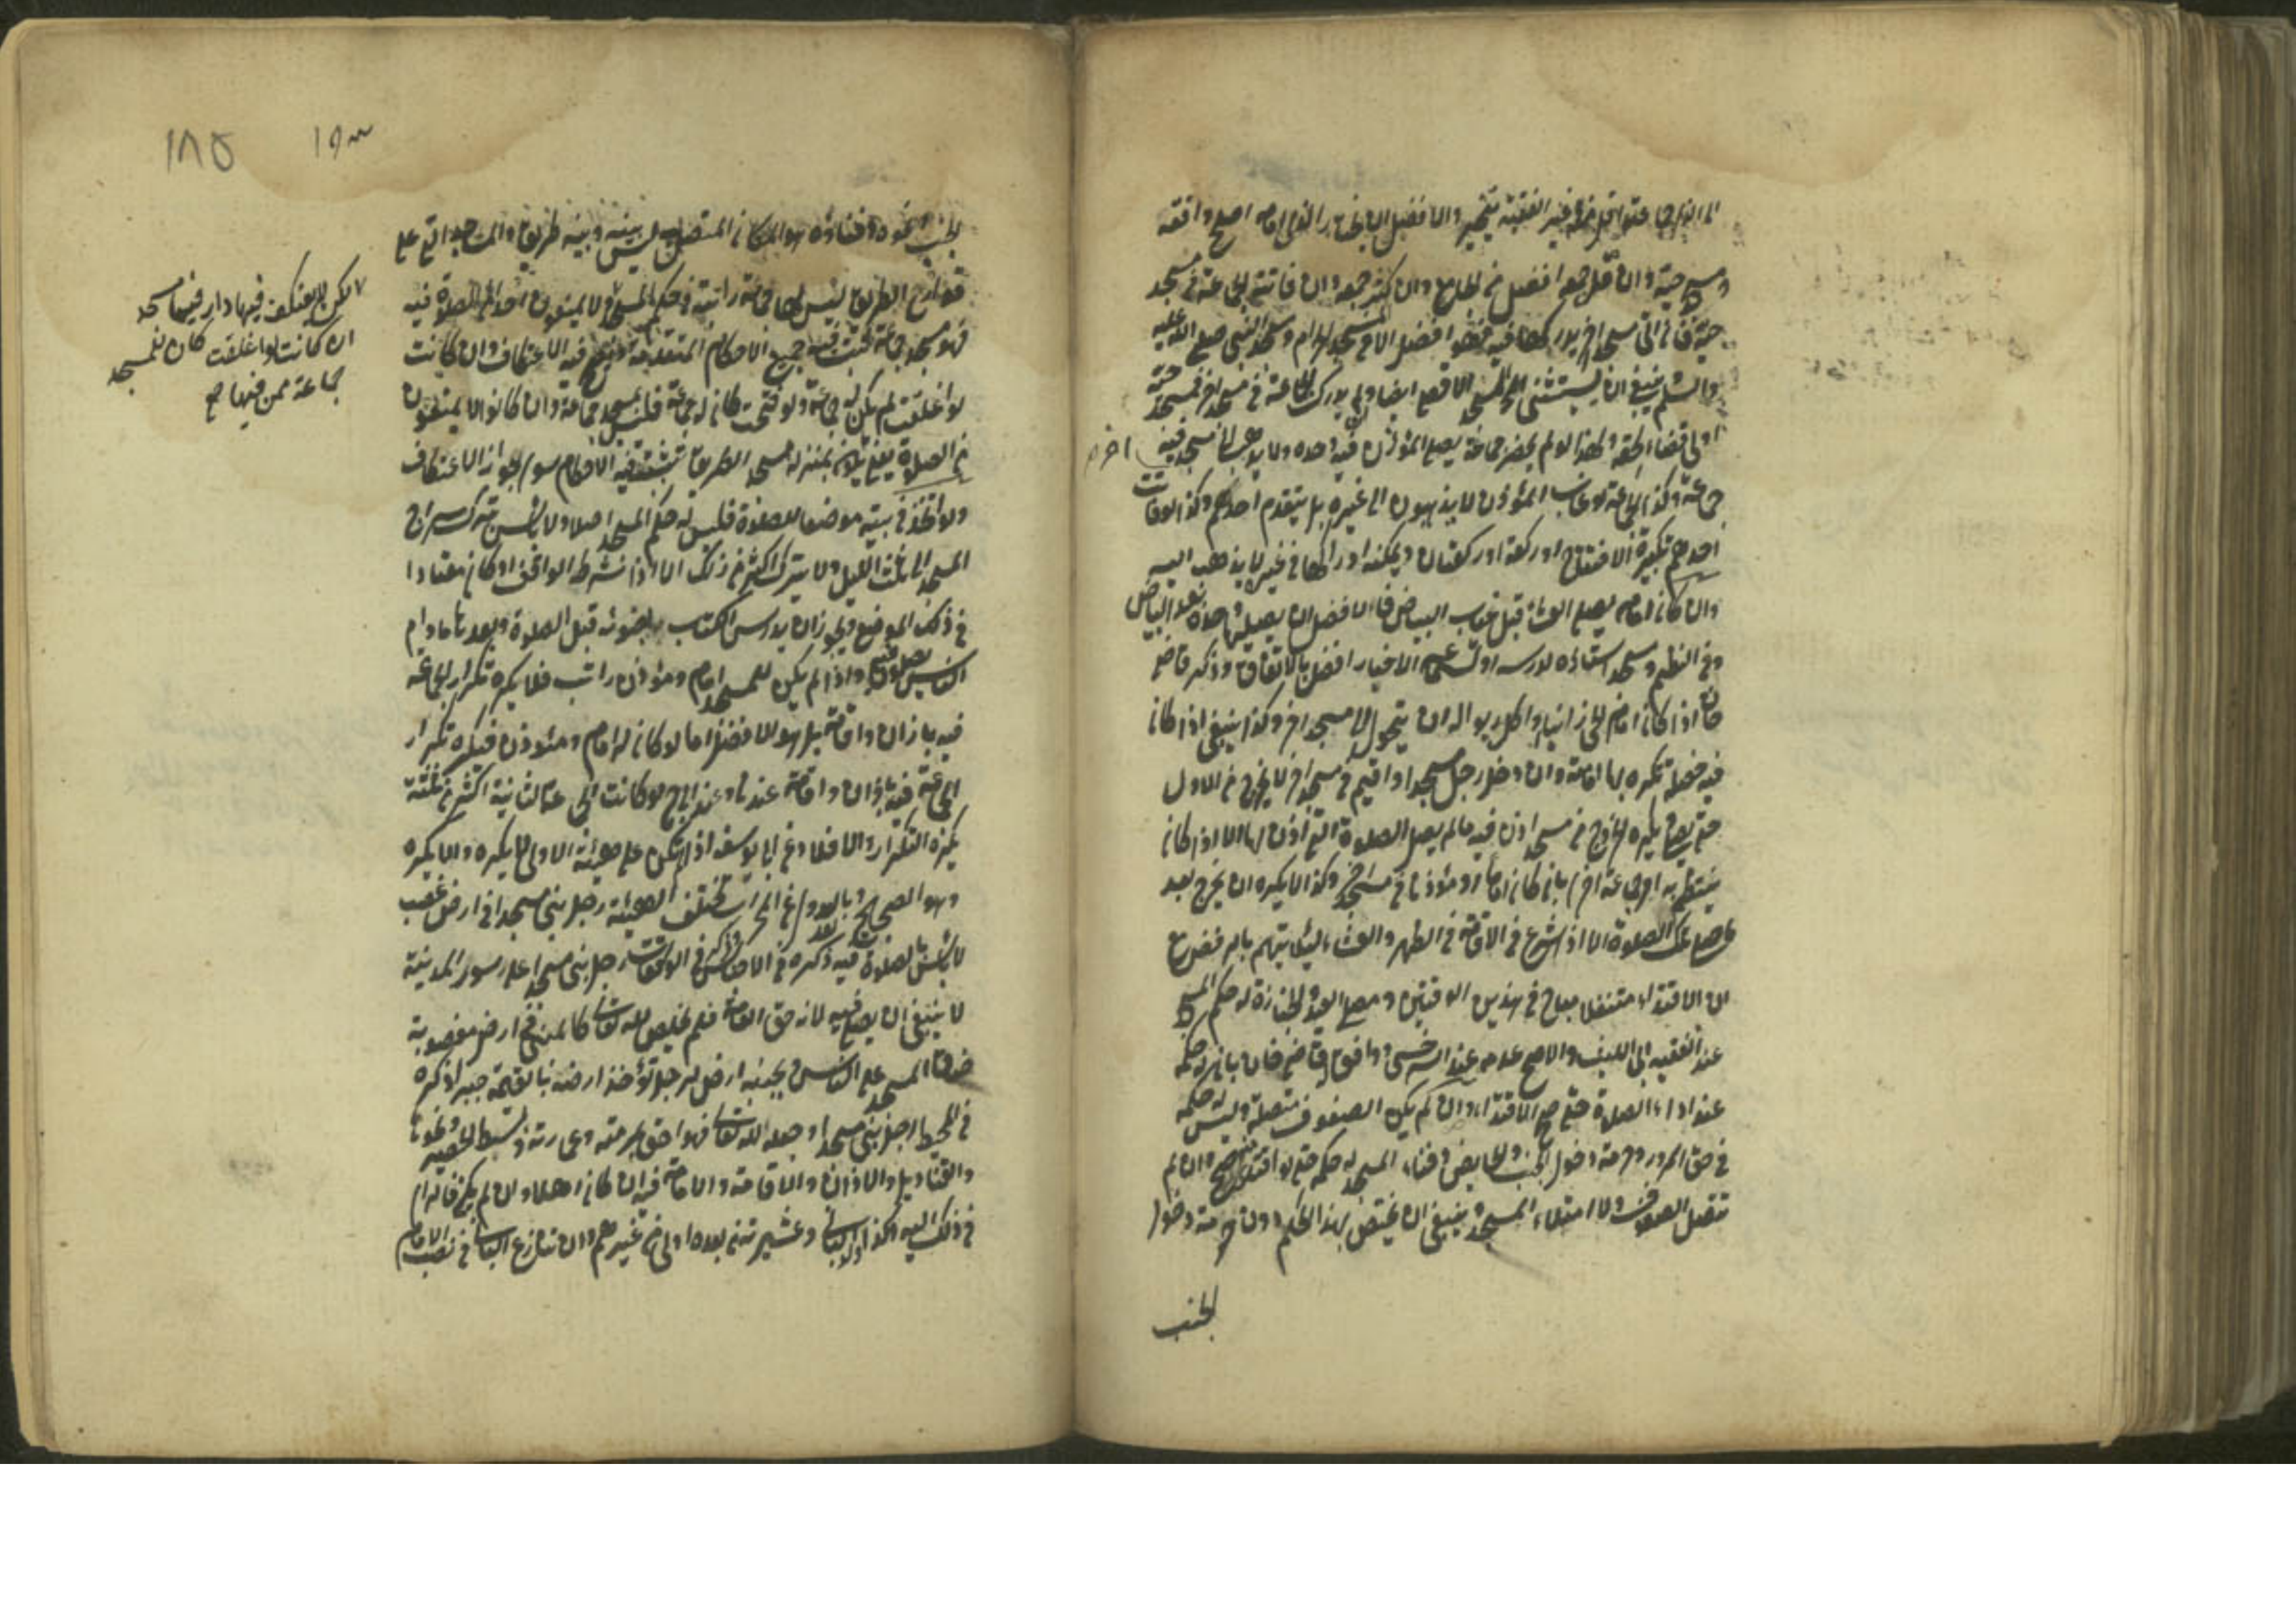 الى الذى جماعته اقل وغير الفقيه يتخير والافضل ان يختار الذى امامه اصلح وافقه
ومسجد حيه وان قل جمعه افضل من الجامع وان كثر جمعه وان فاتته الجماعة فى مسجد
حيه فان اتى مسجدا اخر يدركها فيه فهو افضل الا فى المسجد الحرام ومسجد النبى صلى الله عليه
وسلم ينبغى ان يستثنى المسجد الاقصى ايضا وان لم يدرك الجماعة فى مسجد اخر فمسجد حيه
اولى قضاء لحقه ولهذا لو لم يحضر جماعة يصلى المؤذن فيه وحده ولا يذهب الى مسجد فيه
جماعة وكذا الجماعة لو غاب المؤذن لا يذهبون الى غيره بل يتقدم احدهم وكذا لو فات
احدهم تكبيرة الافتتاح او ركعة او ركعتان ويمكنه ادراكها فى غيره لا يذهب اليه
وان كان امامه يصلى العشاء قبل غياب البياض فالافضل ان يصليها وحده بعد البياض
وفى النظم ومسجد استاذه لدرسه او لسماع الاخبار افضل بالاتفاق وذكر قاضى
خان اذا كان امام الحى زانيا او اكل ربوا له ان يتحول الى مسجد اخر وكذا ينبغى اذا كان
فيه خصلة تكره بها امامته وان دخل رجل مسجدا واقيم فى مسجد اخر لا يخرج من الاول
حتى يصلى يكره الخروج من مسجد اذن فيه ما لم يصل الصلوة التى اذن لها الا اذا كان
ينتظم به امر جماعة اخرى بان كان اماما او مؤذنا فى مسجد اخر وكذا لا يكره ان يخرج بعد
ما صلى تلك الصلوة الا اذا شرع فى الاقامة فى الظهر والعشاء لئلا يتهم بالرفض مع
ان الاقتداء متنفلا مباح فى هذين الوقتين ومصلى العيد والجنازة له حكم المسجد
عند الفقيه ابى الليث والاصح عدمه عند السرخسى ووافق قاضى خان بان له حكمه
عند اداء الصلوة حتى صح الاقتداء وان لم يكن الصفوف متصلة وليس له حكمه
فى حق المرور وحرمة دخول الجنب والحائض وفناء المسجد له حكمه حتى لو اقتدى منه صح وان لم
تتصل الصفوف ولا امتلاء المسجد وينبغى ان يختص بهذا الحكم دون حرمة دخول
الجنب
اخر م
الجنب ونحوه وفناؤه هو المكان المتصل به ليس بينه وبينه طريق والمساجد التى على
قوارع الطريق ليس لها جماعة راتبة فى حكم المسجد
فهو مسجد جماعة تثبت فيه جميع الاحكام المتقدمة ويصح فيه الاعتكاف وان كانت
لو اغلقت لم يكن له جماعة ولو فتحت كان له جماعة فليس بمسجد جماعة وان كانوا لا يمنعون
من الصلوة فيه بمنزلة مسجد الطريق تثبت فيه الاحكام سوى جواز الاعتكاف
ولو اتخذ فى بيته موضعا للصلوة فليس له حكم المسجد اصلا ولا باس بترك سراج
المسجد الى ثلث الليل ولا يترك اكثر من ذلك الا اذا شرط الواقف او كان معتادا
فى ذلك الموضع ويجوز ان يدرس الكتاب بضوئه قبل الصلوة وبعدها ما دام
الناس يصلون فيه واذا لم يكن للمسجد امام ومؤذن راتب فلا يكره تكرار الجماعة
فيه باذان واقامة بل هو الافضل اما لو كان له امام ومؤذن فيكره تكرار
الجماعة فيه باذان واقامة عندنا وعند ابى ح لو كانت الجماعة الثانية اكثر من ثلثة
يكره التكرار والا فلا وعن ابى يوسف اذا لم تكن على هيئة الاولى لا يكره والا يكره
وهو الصحيح وبالعدول عن المحراب تختلف الهيئة رجل بنى مسجدا فى ارض غصب
لا باس بالصلوة فيه ذكره فى الواقعات رجل بنى مسجدا على سور المدينة
لا ينبغى ان يصلى فيه لانه حق العامة فلم يخلص لله تعالى كالمبنى فى ارض مغصوبة
ضاق المسجد على الناس وبجنبه ارض لرجل تؤخذ ارضه بالقيمة جبرا ذكره
فى المحيط رجل بنى مسجدا وجعله لله تعالى فهو احق بمرمته وعمارته وبسط الحصير ونحوها
والقناديل والاذان والاقامة والامامة فيه ان كان اهلا وان لم يكن فالراى
فى ذلك اليه وكذا ولد البانى وعشيرته من بعده اولى من غيرهم وان تنازع البانى فى نصب الامام
لكن لا يعتكف فيها دار فيها مسجد
ان كانت لو اغلقت كان للمسجد
جماعة ممن فيها صح
١٨٥